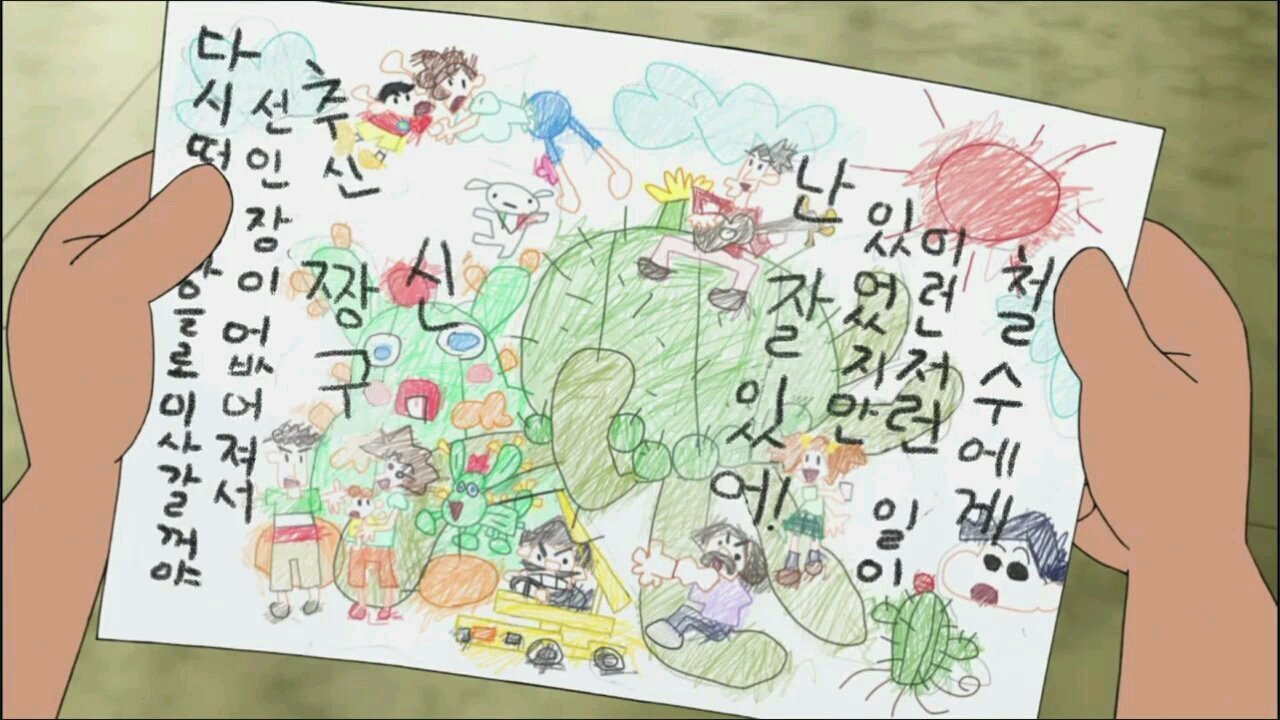 철수에게!
이런저런 일이
있었지만
난 잘 있어!
신
짱구
추신
선인장이 없어져서
다시 이사갈꺼야